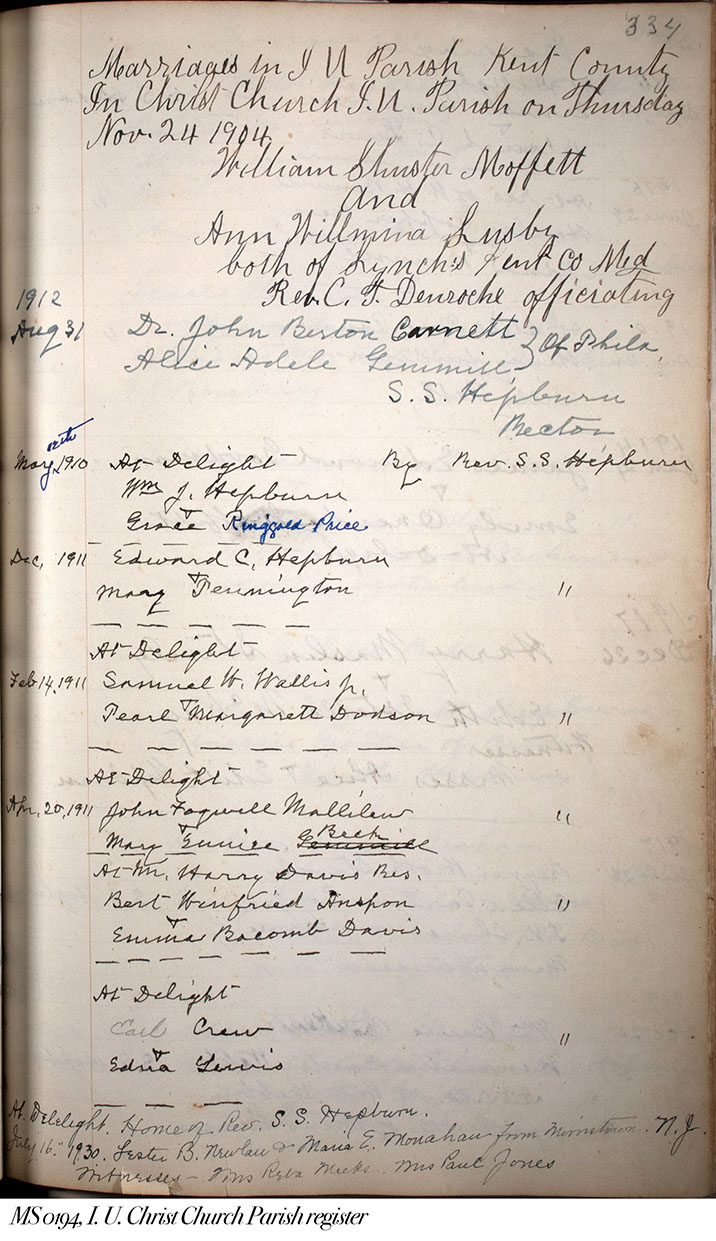 334
Marriages in I U Parish Kent County
In Christ Church I.U. Parish on Thursday
Nov. 24 1904.
William Shuster Moffett
and
Ann Willmina Lusby
both of Lynch's Kent Co Md
Rev. C. T. Denroche officiating
1912
Aug 31 Dr. John Berton Carnett } Of Phila.
Alice Adele Gemmill
S. S. Hepburn
Rector
May, 1910 At Delight By Rev. S. S. Hepburn
Wm J. Hepburn
Grace Ringgold Price
Dec, 1911 Edward C. Hepburn
Mary Pennington "
At Delight
Feb 14, 1911 Samuel W. Wallis jr.
Pearl Margarett Dodson "
At Delight
Apr, 20, 1911 John Fogwell Mallilew "
Mary Eunice Beck Gemmill
At Mr. Harry Davis Res.
Bert Winfried Anspon "
Emma Bacomb Davis
At Delight
Earl Crew "
Edna Lewis
At Delelight. Home of Rev. S. S. Hepburn.
July 16" 1930. Lester B. Newlan & Maria E. Monahan from Morristown. N. J.
Witnesses — Reba Meeks. Mrs Paul Jones
MS 0194, I. U. Christ Church Parish register